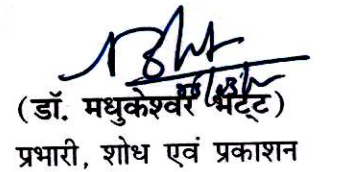 (डॉ. मधुकेश्वर भट्ट)
प्रभारी, शोध एवं प्रकाशन